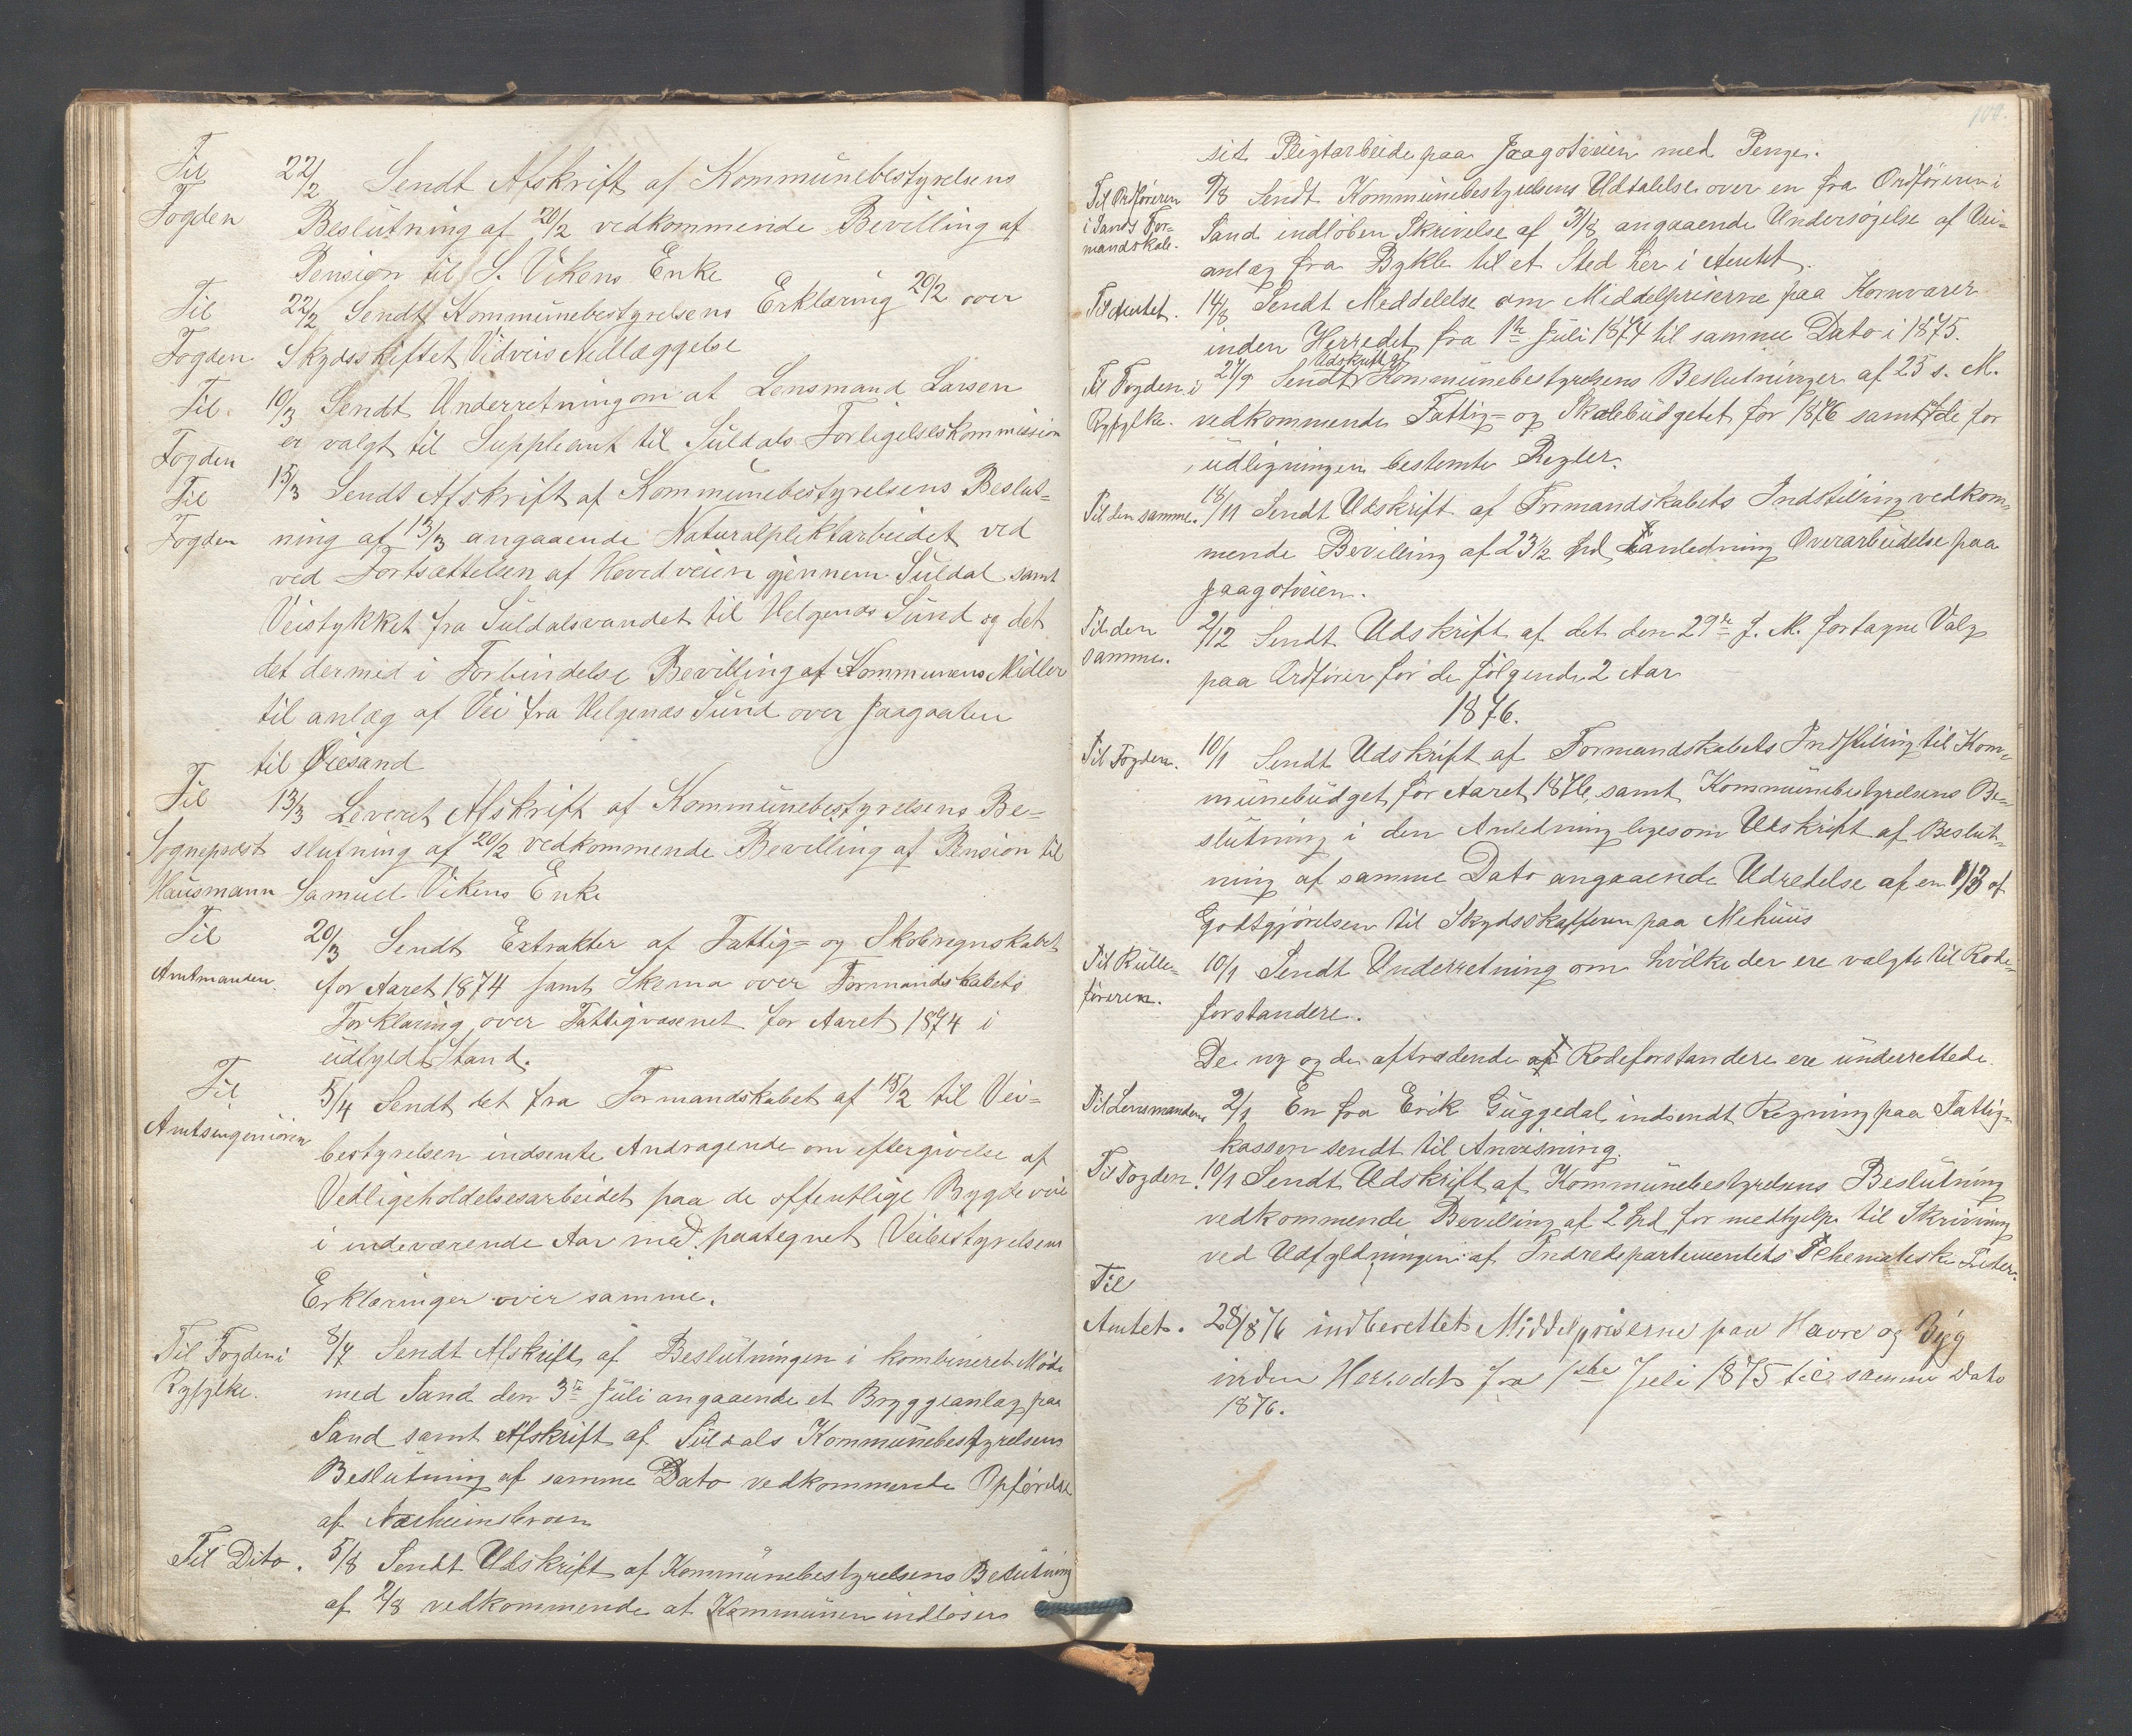 Til
Fogden
22/2 Sendt Afskrift af Kommunebestyrelsens
Beslutning af 20/2 vedkommende Bevilling af
Pension til S. Vikens Enke
Til
Fogden
22/2 Sendt Kommunebestyrelsens Erklæring 20/2 over
Skydsskiftet Vidveis Nedlæggelse
Til
Fogden
10/3 Sendt Underretning om at Lensmand Larsen
er valgt til Suppleant til Suldals Forligelseskommission
Til
Fogden
15/3 Sendt Afskrift af Kommunebestyrelsens Beslut=
ning af 13/3 angaaende Naturalpliktarbeidet ved
ved Fortsættelsen af Hovedveien gjennem Suldal samt
Veistykket fra Suldalsvandet til Helgenæs Sund og det
det dermed i Forbindelse Bevilling af Kommunens Midler
til anlæg af Vei fra Helgenæs Sund over Jaagaaten
til Øiesand
Til
Sogneprest
Hausmann
13/3 Leveret Afskrift af Kommunebestyrelsens Be=
slutning af 20/2 vedkommende Bevilling af Pension til
Samuel Vikens Enke
Til
Amtmanden.
20/3 Sendt Extrakter af Fattig= og Skoleregnskabet
for Aaret 1874 samt Skema over Formandskabets
Forklaring over Fattigvæsenet for Aaret 1874 i
udfyldt Stand.
Til
Amtsingeniøren
5/4 Sendt det fra Formandskabet af 15/2 til Vei=
bestyrelsen indsente Andragende om eftergivelse af
Vedligeholdelsesarbeidet paa de offentlige Bygdeveie
i indeværende Aar med paategnet Veibestyrelsens
Erklæringer over samme.
Til Fogden i
Ryfylke.
8/7 Sendt Afskrift af Beslutningen i kombineret Møde
med Sand den 3die Juli angaaende et Bryggeanlæg paa
Sand samt Afskrift af Suldals Kommunebestyrelsens
Beslutning af samme Dato vedkommende Opførelse
af
Til Dito.
5/8 Sendt Udskrift af Kommunebestyrelsens Beslutning
af 2/8 vedkommende at Kommunen indløser
100.
sit Pligtarbeide paa Jaagotveien med Penge.
Til Ordføreren
i Sands For=
mandskab.
9/8 Sendt Kommunebestyrelsens Udtalelse over en fra Ordføreren i
Sand indløben Skrivelse af 3/8 angaaende Undersøgelse af Vei=
anlæg fra Bykle til et Sted her i Amtet.
Til Amtet.
14/8 Sendt Meddelelse om Middelpriserne paa Kornvarer
inden Herredet fra 1te Juli 1874 til samme Dato i 1875.
Til Fogden i
Ryfylke.
27/9 Sendt Udskrift af Kommunebestyrelsens Beslutninger af 25 s. M.
vedkommende Fattig= og Skolebudgetet for 1876 samt de for
udligningen bestemte Regler.
Til den samme.
18/11 Sendt Udskrift af Formandskabets Indstilling vedkom=
mende Bevilling af 23½ Spd anledning Overarbeidelse paa
Jaagotveien.
Til den
samme.
2/12 Sendt Udskrift af det den 29de f. M. fortagne Valg
paa Ordfører for de følgende 2 Aar
1876.
Til Fogden.
10/1 Sendt Udskrift af Formandskabets Indstiling til Kom=
munebudget for Aaret 1876, samt Kommunebestyrelsens Be=
slutning i den Anledning ligesom Udskrift af Beslut=
ning af samme Dato angaaende Udredelse af en 1/3 af
Godtgjørelsen til Skydsskafferen paa Mehuus
Til Rulle=
føreren.
10/1 Sendt Underretning om hvilke der ere valgte til Rode=
forstandere.
De ny og de aftrædende Rodeforstandere ere underrettede.
Til Lensmanden
2/1 En fra Erik Guggedal indsendt Regning paa Fattig=
kassen sendt til Anvisning.
Til Fogden.
10/1 Sendt Udskrift af Kommunebestyrelsens Beslutning
vedkommende Bevilling af 2 Spd for medhjelp til Skrivning
ved Udfyldningen af Indredepartementets Schematiske Lister.
Til
Amtet.
28/8 76 indberettet Middelpriserne paa Havre og Byg
inden Herredet fra 1ste Juli 1875 til samme Dato
1876.